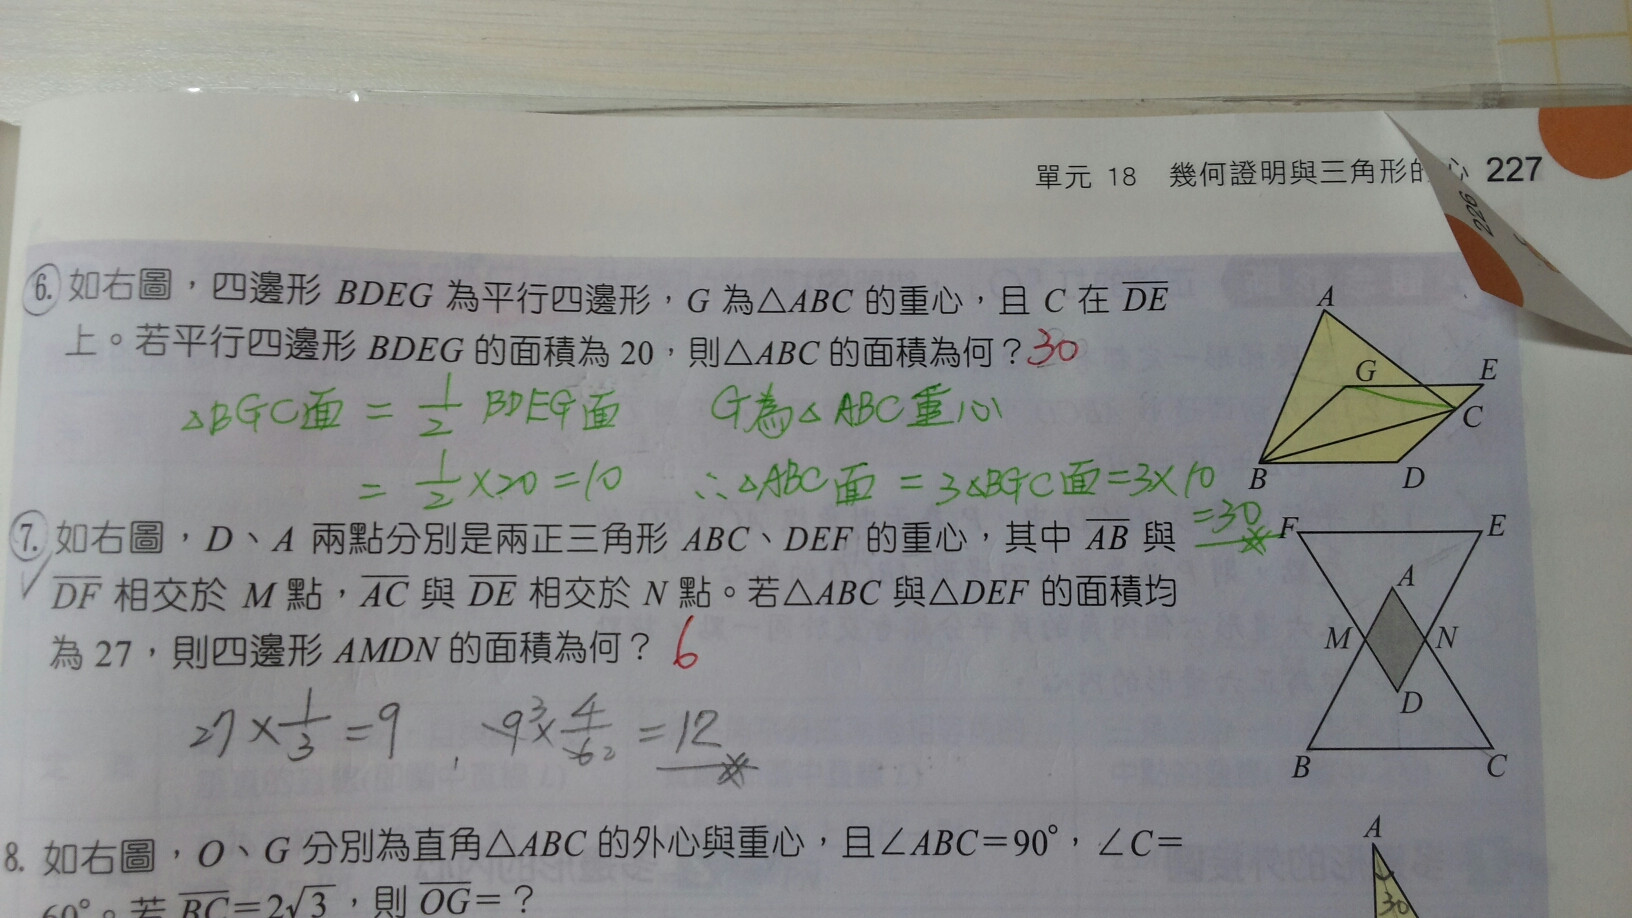 單元 18 幾何證明與三角形的心 227
226
6. 如右圖，四邊形 BDEG 為平行四邊形，G 為△ABC 的重心，且 C 在 DE
上。若平行四邊形 BDEG 的面積為 20，則△ABC 的面積為何？30
△BGC面 = 1/2 BDEG面 G為△ABC重心
= 1/2 × 20 = 10 ∴△ABC面 = 3△BGC面 = 3×10
= 30
A
G
E
C
B
D
7. 如右圖，D、A 兩點分別是兩正三角形 ABC、DEF 的重心，其中 AB 與
DF 相交於 M 點，AC 與 DE 相交於 N 點。若△ABC 與△DEF 的面積均
為 27，則四邊形 AMDN 的面積為何？ 6
27 × 1/3 = 9 9 3 × 4/6 2 = 12
F
E
A
M
N
D
B
C
8. 如右圖，O、G 分別為直角△ABC 的外心與重心，且∠ABC=90°，∠C=
60°。若 BC=2√3，則 OG=？
A
30